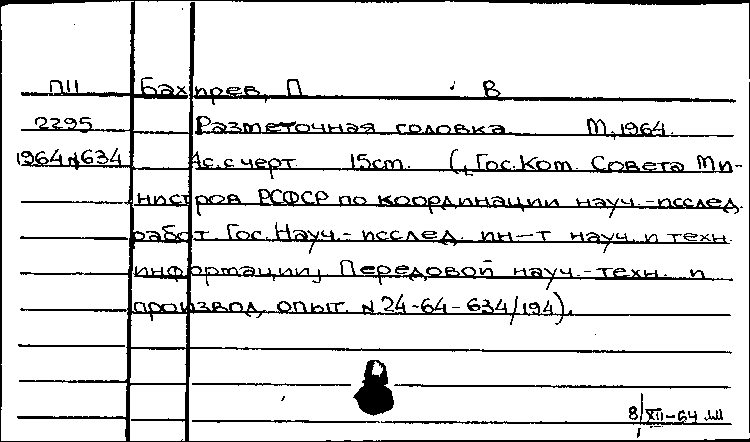 ПII Бахирев, П В
2295 Разметочная головка М, 1964.
1964 N634 4с. с черт 15cm. (Гос. Ком. Совета Ми-
нистров РСФСР по координации науч.-исслед.
работ. Гос. Науч.-исслед. ин-т науч. и техн.
информации, Передовой науч.-техн. и
производ, опыт. N 24-64-634/194).
8/XII-64